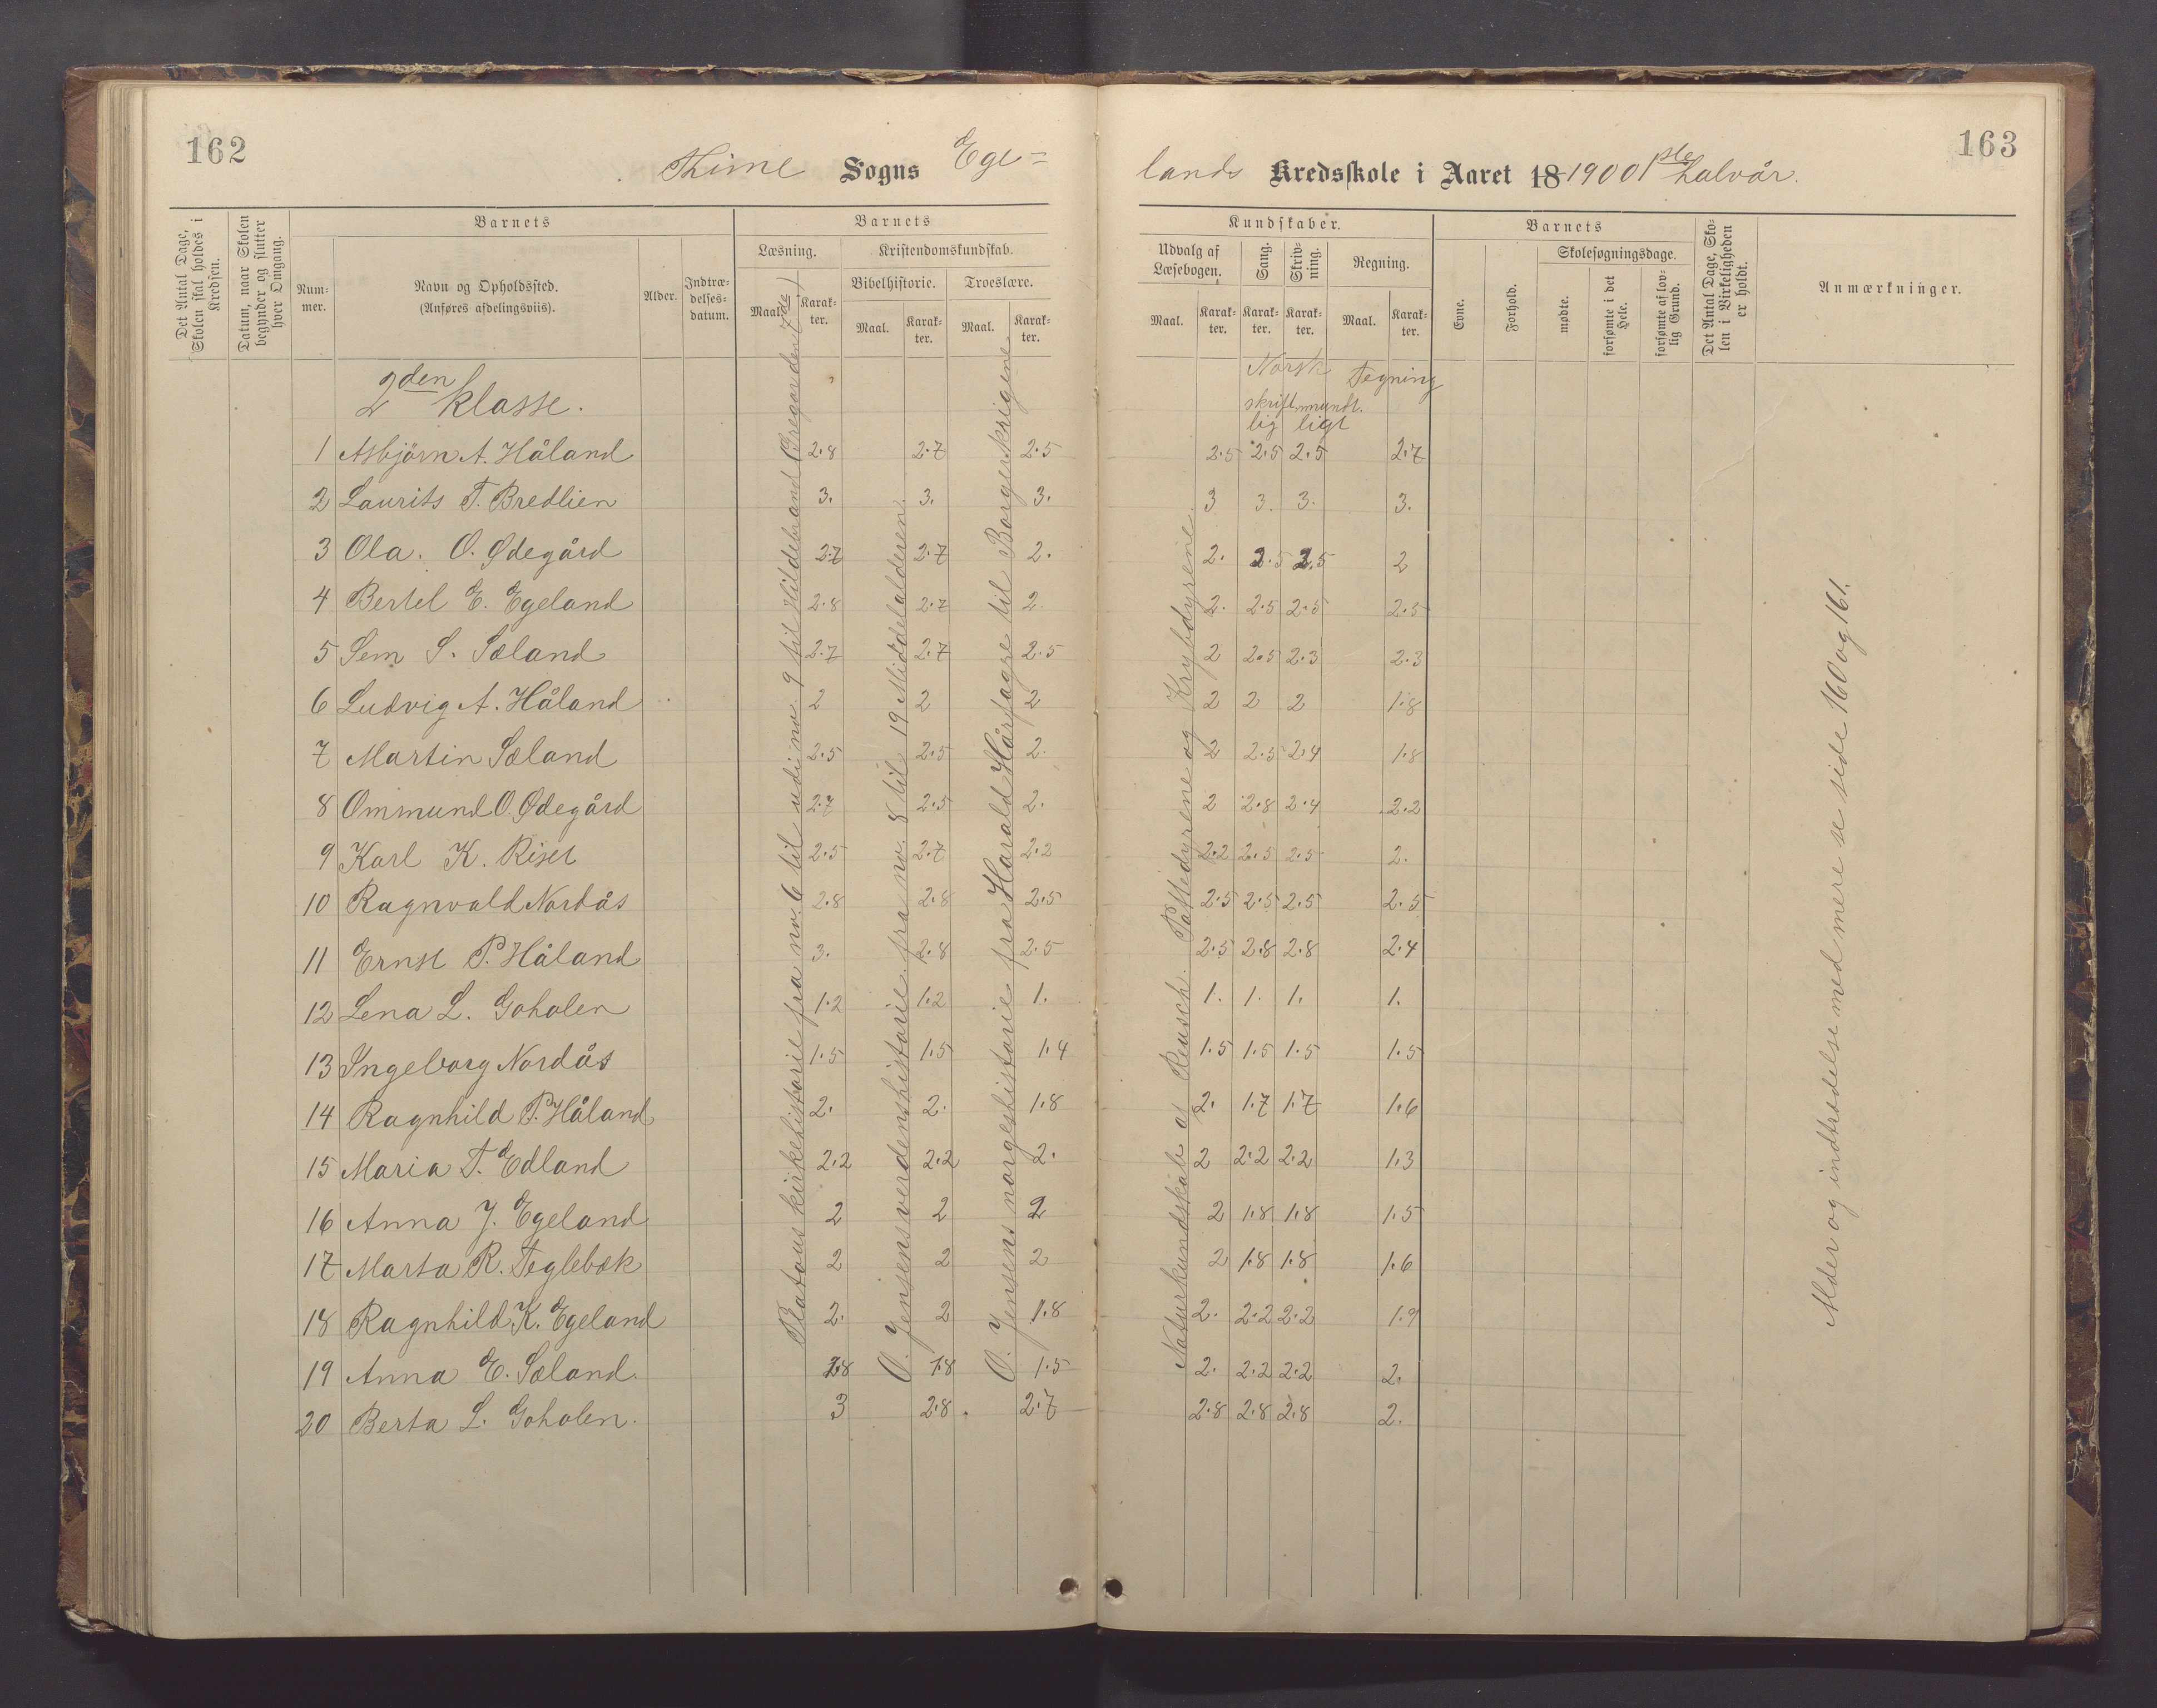 162
Thime Sogns Ege=
lands Kredsskole i Aaret 18 1900 1ste halvår.
163
Det Antal Dage, Skolen skal holdes i Kredsen.
Datum, naar Skolen begynder og slutter hver Omgang.
Barnets
Num-
mer.
Navn og Opholdssted.
(Anføres afdelingsviis).
Alder.
Indtræ-
delses-
datum.
Barnets
Læsning.
Kristendomskundskab.
Bibelhistorie.
Troeslære.
Maal. Karak-
ter.
Maal. Karak-
ter.
Maal. Karak-
ter.
Kundskaber.
Udvalg af
Læsebogen.
Sang.
Skriv-
ning.
Regning.
Maal. Karak-
ter.
Karak-
ter.
Karak-
ter.
Maal. Karak-
ter.
Barnets
Evne.
Forhold.
Skolesøgningsdage.
mødte.
forsømte i det Hele.
forsømte af lov-
lig Grund.
Det Antal Dage, Sko-
len i Virkeligheden
er holdt.
Anmærkninger.
2den klasse.
Norsk Tegning
skrift mundt.
lig ligt
1 Asbjörn A. Håland 2.8 2.7 2.5 2.5 2.5 2.5 2.7
2 Laurits T. Bredlien 3. 3. 3. 3 3. 3. 3.
3 Ola. O. Ødegård 2.7 2.7 2. 2. 2.5 2.5 2
4 Bertel E. Egeland 2.8 2.7 2. 2. 2.5 2.5 2.5
5 Sem S. Sæland 2.7 2.7 2.5 2 2.5 2.3 2.3
6 Ludvig A. Håland 2 2 2 2 2 2 1.8
7 Martin Sæland 2.5 2.5 2. 2 2.5 2.4 1.8
8 Ommund O. Ødegård 2.7 2.5 2. 2 2.8 2.4 2.2
9 Karl K. Riset 2.5 2.7 2.2 2.2 2.5 2.5 2.
10 Ragnvald Nordås 2.8 2.8 2.5 2.5 2.5 2.5 2.5
11 Ernst P. Håland 3. 2.8 2.5 2.5 2.8 2.8 2.4
12 Lena L. Goholen 1.2 1.2 1. 1. 1. 1. 1.
13 Ingeborg Nordås 1.5 1.5 1.4 1.5 1.5 1.5 1.5
14 Ragnhild P. Håland 2. 2. 1.8 2. 1.7 1.7 1.6
15 Maria T. Edland 2.2 2.2 2. 2 2.2 2.2 1.3
16 Anna J. Egeland 2 2 2 2 1.8 1.8 1.5
17 Marta R. Teglebæk 2 2 2 2 1.8 1.8 1.6
18 Ragnhild K. Egeland 2. 2 1.8 2. 2.2 2.2 1.9
19 Anna E. Sæland. 1.8 1.8 1.5 2. 2.2 2.2 2.
20 Berta L. Goholen. 3 2.8. 2.7 2.8 2.8 2.8 2.
Platous kirkehistorie fra no. 6 til udi no. 9 til Hildebrand (Gregor den 7de)
O. Jensens verdenshistorie fra no. 8 til 19 Middelalderen.
O. Jensens norgeshistorie fra Harald Hårfagre til Borgerkrigene.
Naturkundskab af Reusch. Pattedyrene og Krybdyrene.
Alder og indtrædelse med mere se side 160 og 161.